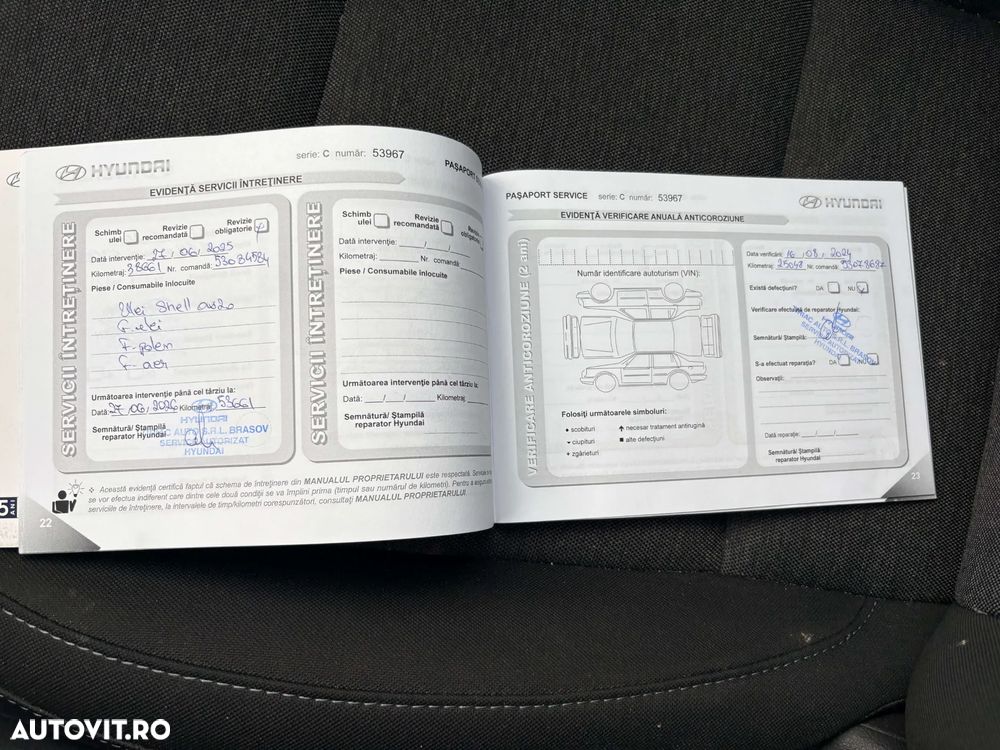 HYUNDAI
serie: C număr: 53967
PAȘAPORT
EVIDENȚĂ SERVICII ÎNTREȚINERE
SERVICII ÎNTREȚINERE
Schimb ulei
Revizie recomandată
Revizie obligatorie
Dată intervenție: 27, 06, 2025
Kilometraj: 38661 Nr. comandă: 53084584
Piese / Consumabile înlocuite
Ulei Shell
F. ulei
F. polen
F. aer
Următoarea intervenție până cel târziu la:
Dată: 27, 06, 2026 Kilometraj: 53661
Semnătură/ Ștampilă
reparator Hyundai
HYUNDAI
AUTO S.R.L. BRASOV
SERVICE AUTORIZAT
HYUNDAI
SERVICII ÎNTREȚINERE
Schimb ulei
Revizie recomandată
Revizie
Dată intervenție: ___/___/___
Kilometraj: Nr. comandă:
Piese / Consumabile înlocuite
Următoarea intervenție până cel târziu la:
Dată: ___/___/___ Kilometraj:
Semnătură/ Ștampilă
reparator Hyundai
Această evidență certifică faptul că schema de întreținere din MANUALUL PROPRIETARULUI este respectată.
se vor efectua indiferent care dintre cele două condiții se va împlini prima (timpul sau numărul de kilometri). Pentru a
serviciile de întreținere, la intervalele de timp/kilometri corespunzători, consultați MANUALUL PROPRIETARULUI
22
5
ANI
PAȘAPORT SERVICE serie: C număr: 53967
HYUNDAI
EVIDENȚĂ VERIFICARE ANUALĂ ANTICOROZIUNE
VERIFICARE ANTICOROZIUNE (2 ani)
Număr identificare autoturism (VIN):
Folosiți următoarele simboluri:
scobituri
ciupituri
zgârieturi
necesar tratament antirugină
alte defecțiuni
Data verificării: 16, 08, 2024
Kilometraj: 25048 Nr. comandă: 53078687
Există defecțiuni? DA NU
Verificare efectuată de reparator Hyundai:
Semnătură/ Ștampilă:
HYUNDAI
TRIAC AUTO S.R.L. BRASOV
SERVICE AUTORIZAT
HYUNDAI
S-a efectuat reparația? DA NU
Observații:
Dată reparație: ___/___/___
Semnătură/ Ștampilă
reparator Hyundai
23
AUTOVIT.RO